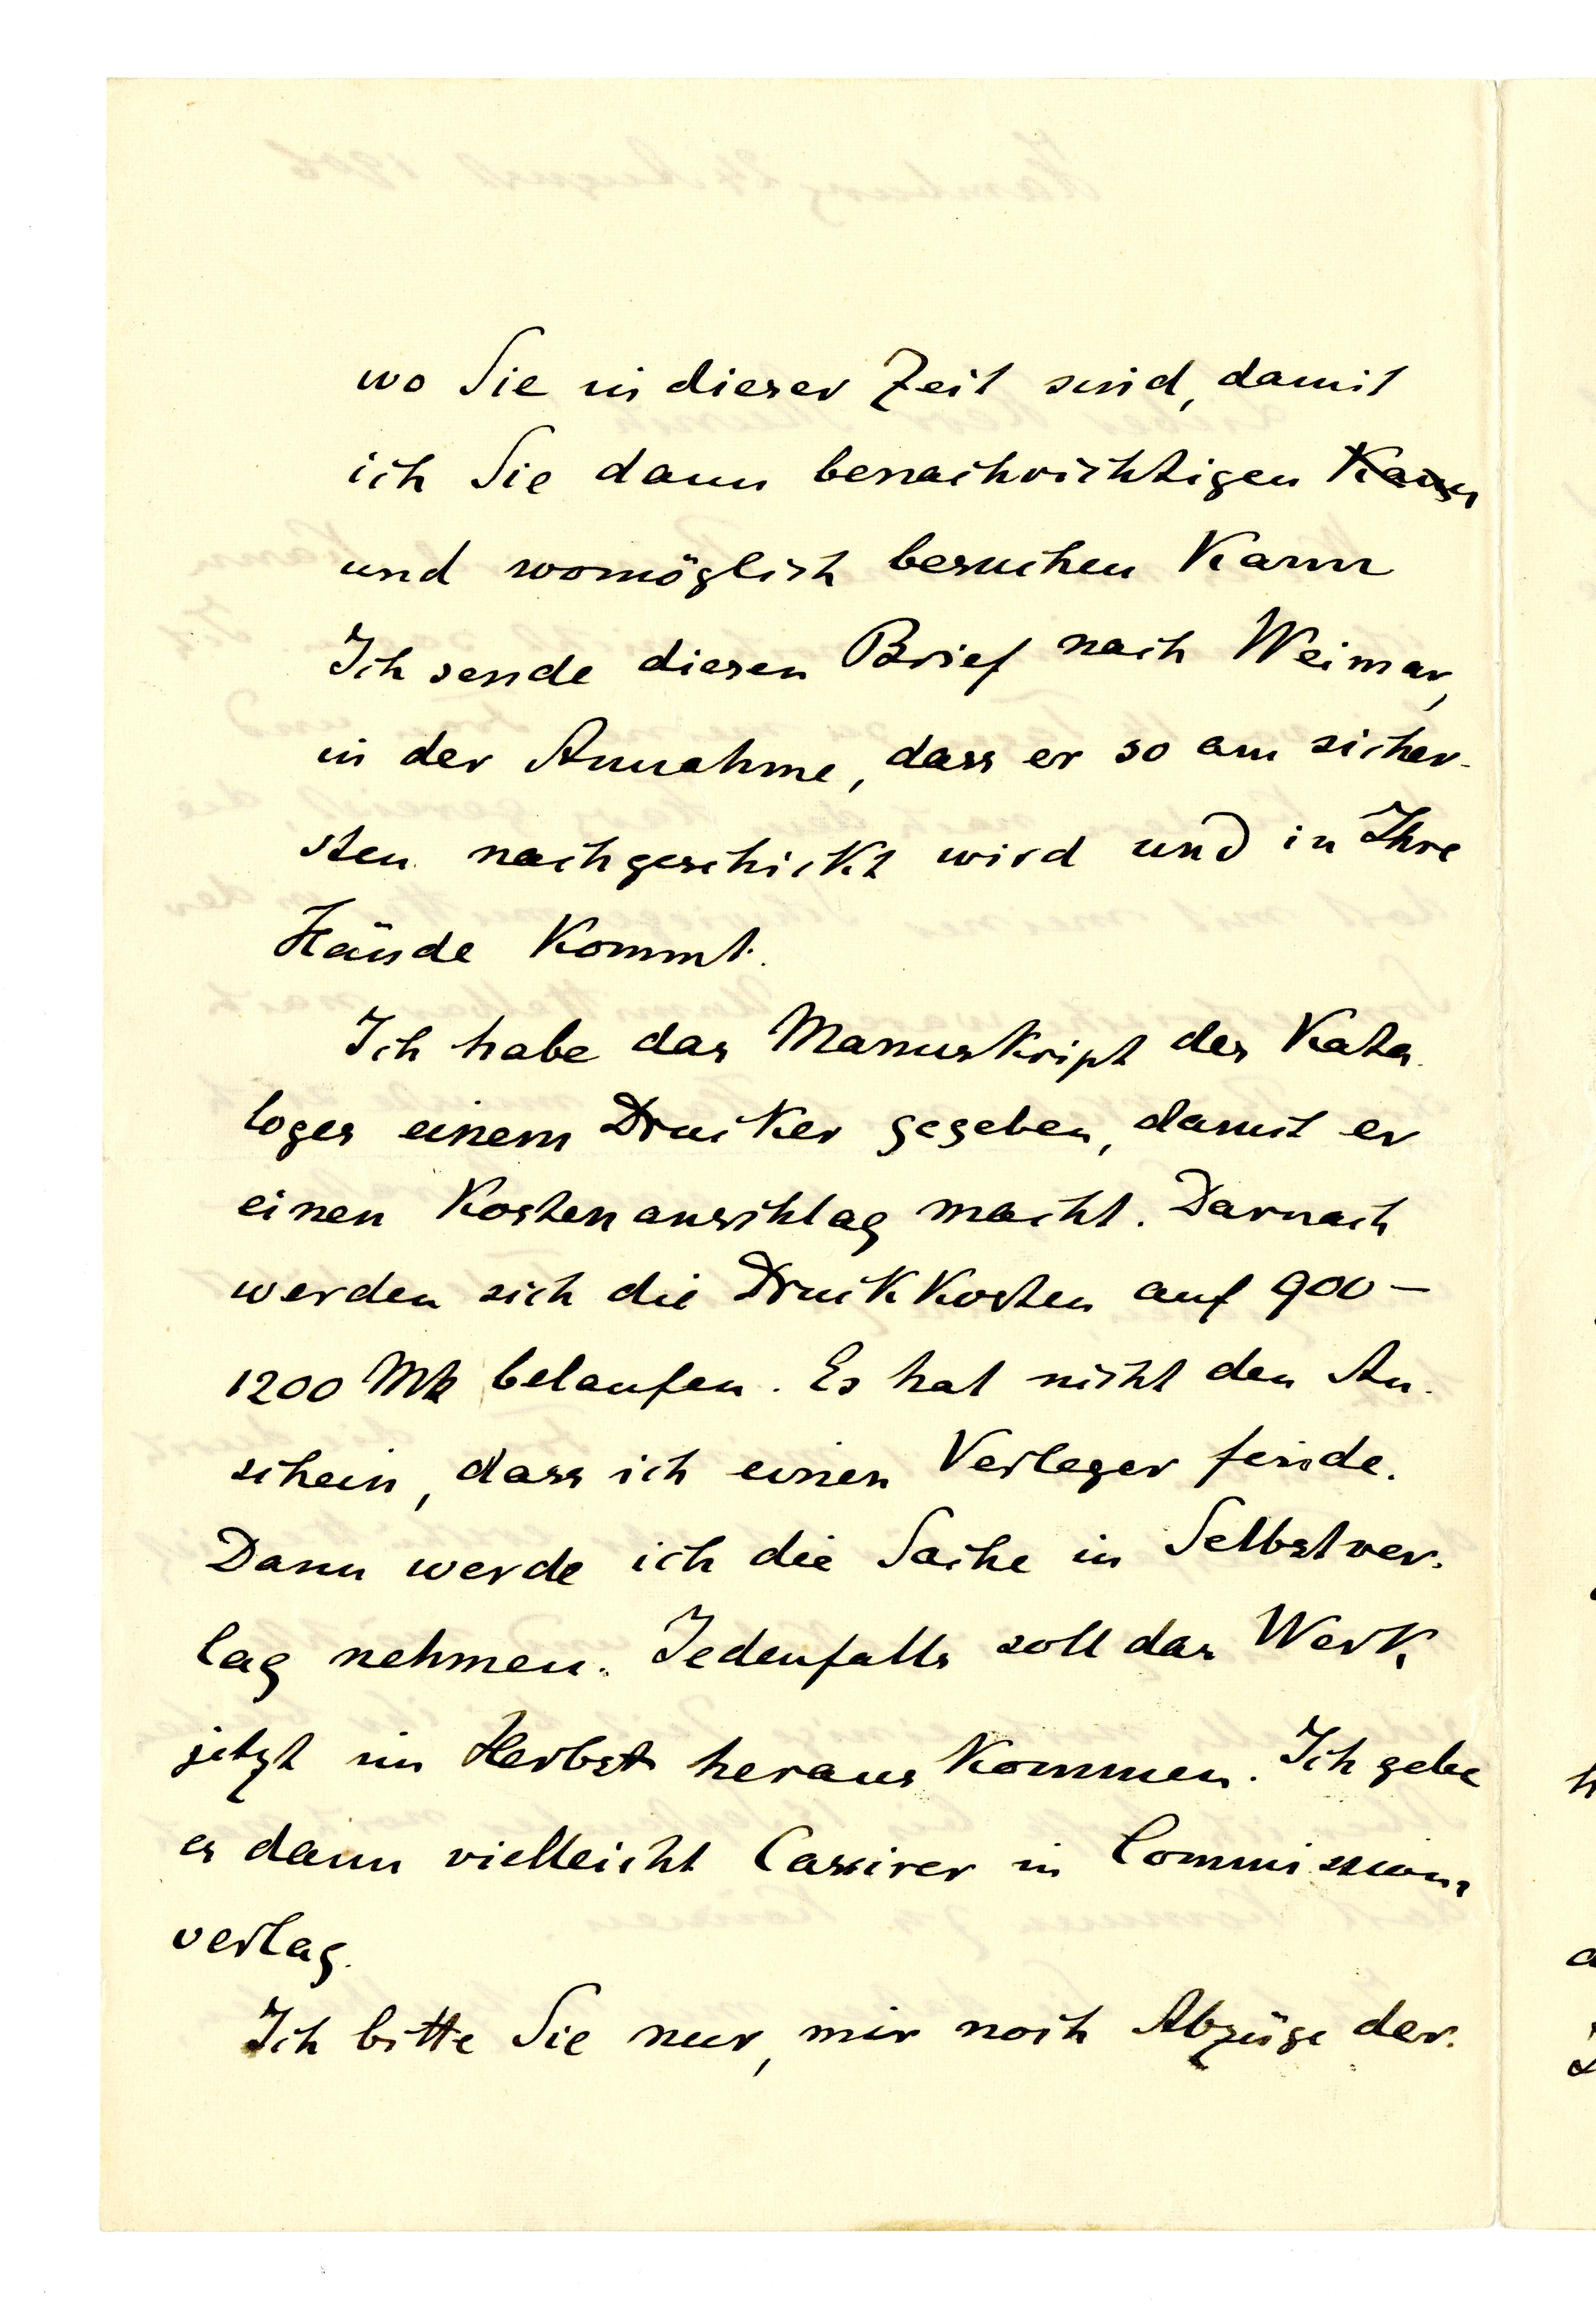 wo Sie in dieser Zeit sind, damit
ich Sie dann benachrichtigen kann
und womöglich besuchen kann
Ich sende diesen Brief nach Weimar,
in der Annahme, dass er so am sicher-
sten nachgeschickt wird und in Ihre
Hände kommt.
Ich habe das Manuskript des Kata-
loges einem Drucker gegeben, damit er
einen Kostenanschlag macht. Darnach
werden sich die Druckkosten auf 900–
1200 Mk belaufen. Es hat nicht den An-
schein, dass ich einen Verleger finde.
Dann werde ich die Sache in Selbstver-
lag nehmen. Jedenfalls soll das Werk
jetzt im Herbst heraus kommen. Ich gebe
es dann vielleicht Cassirer in Commissions
verlag.
Ich bitte Sie nur, mir noch Abzüge der